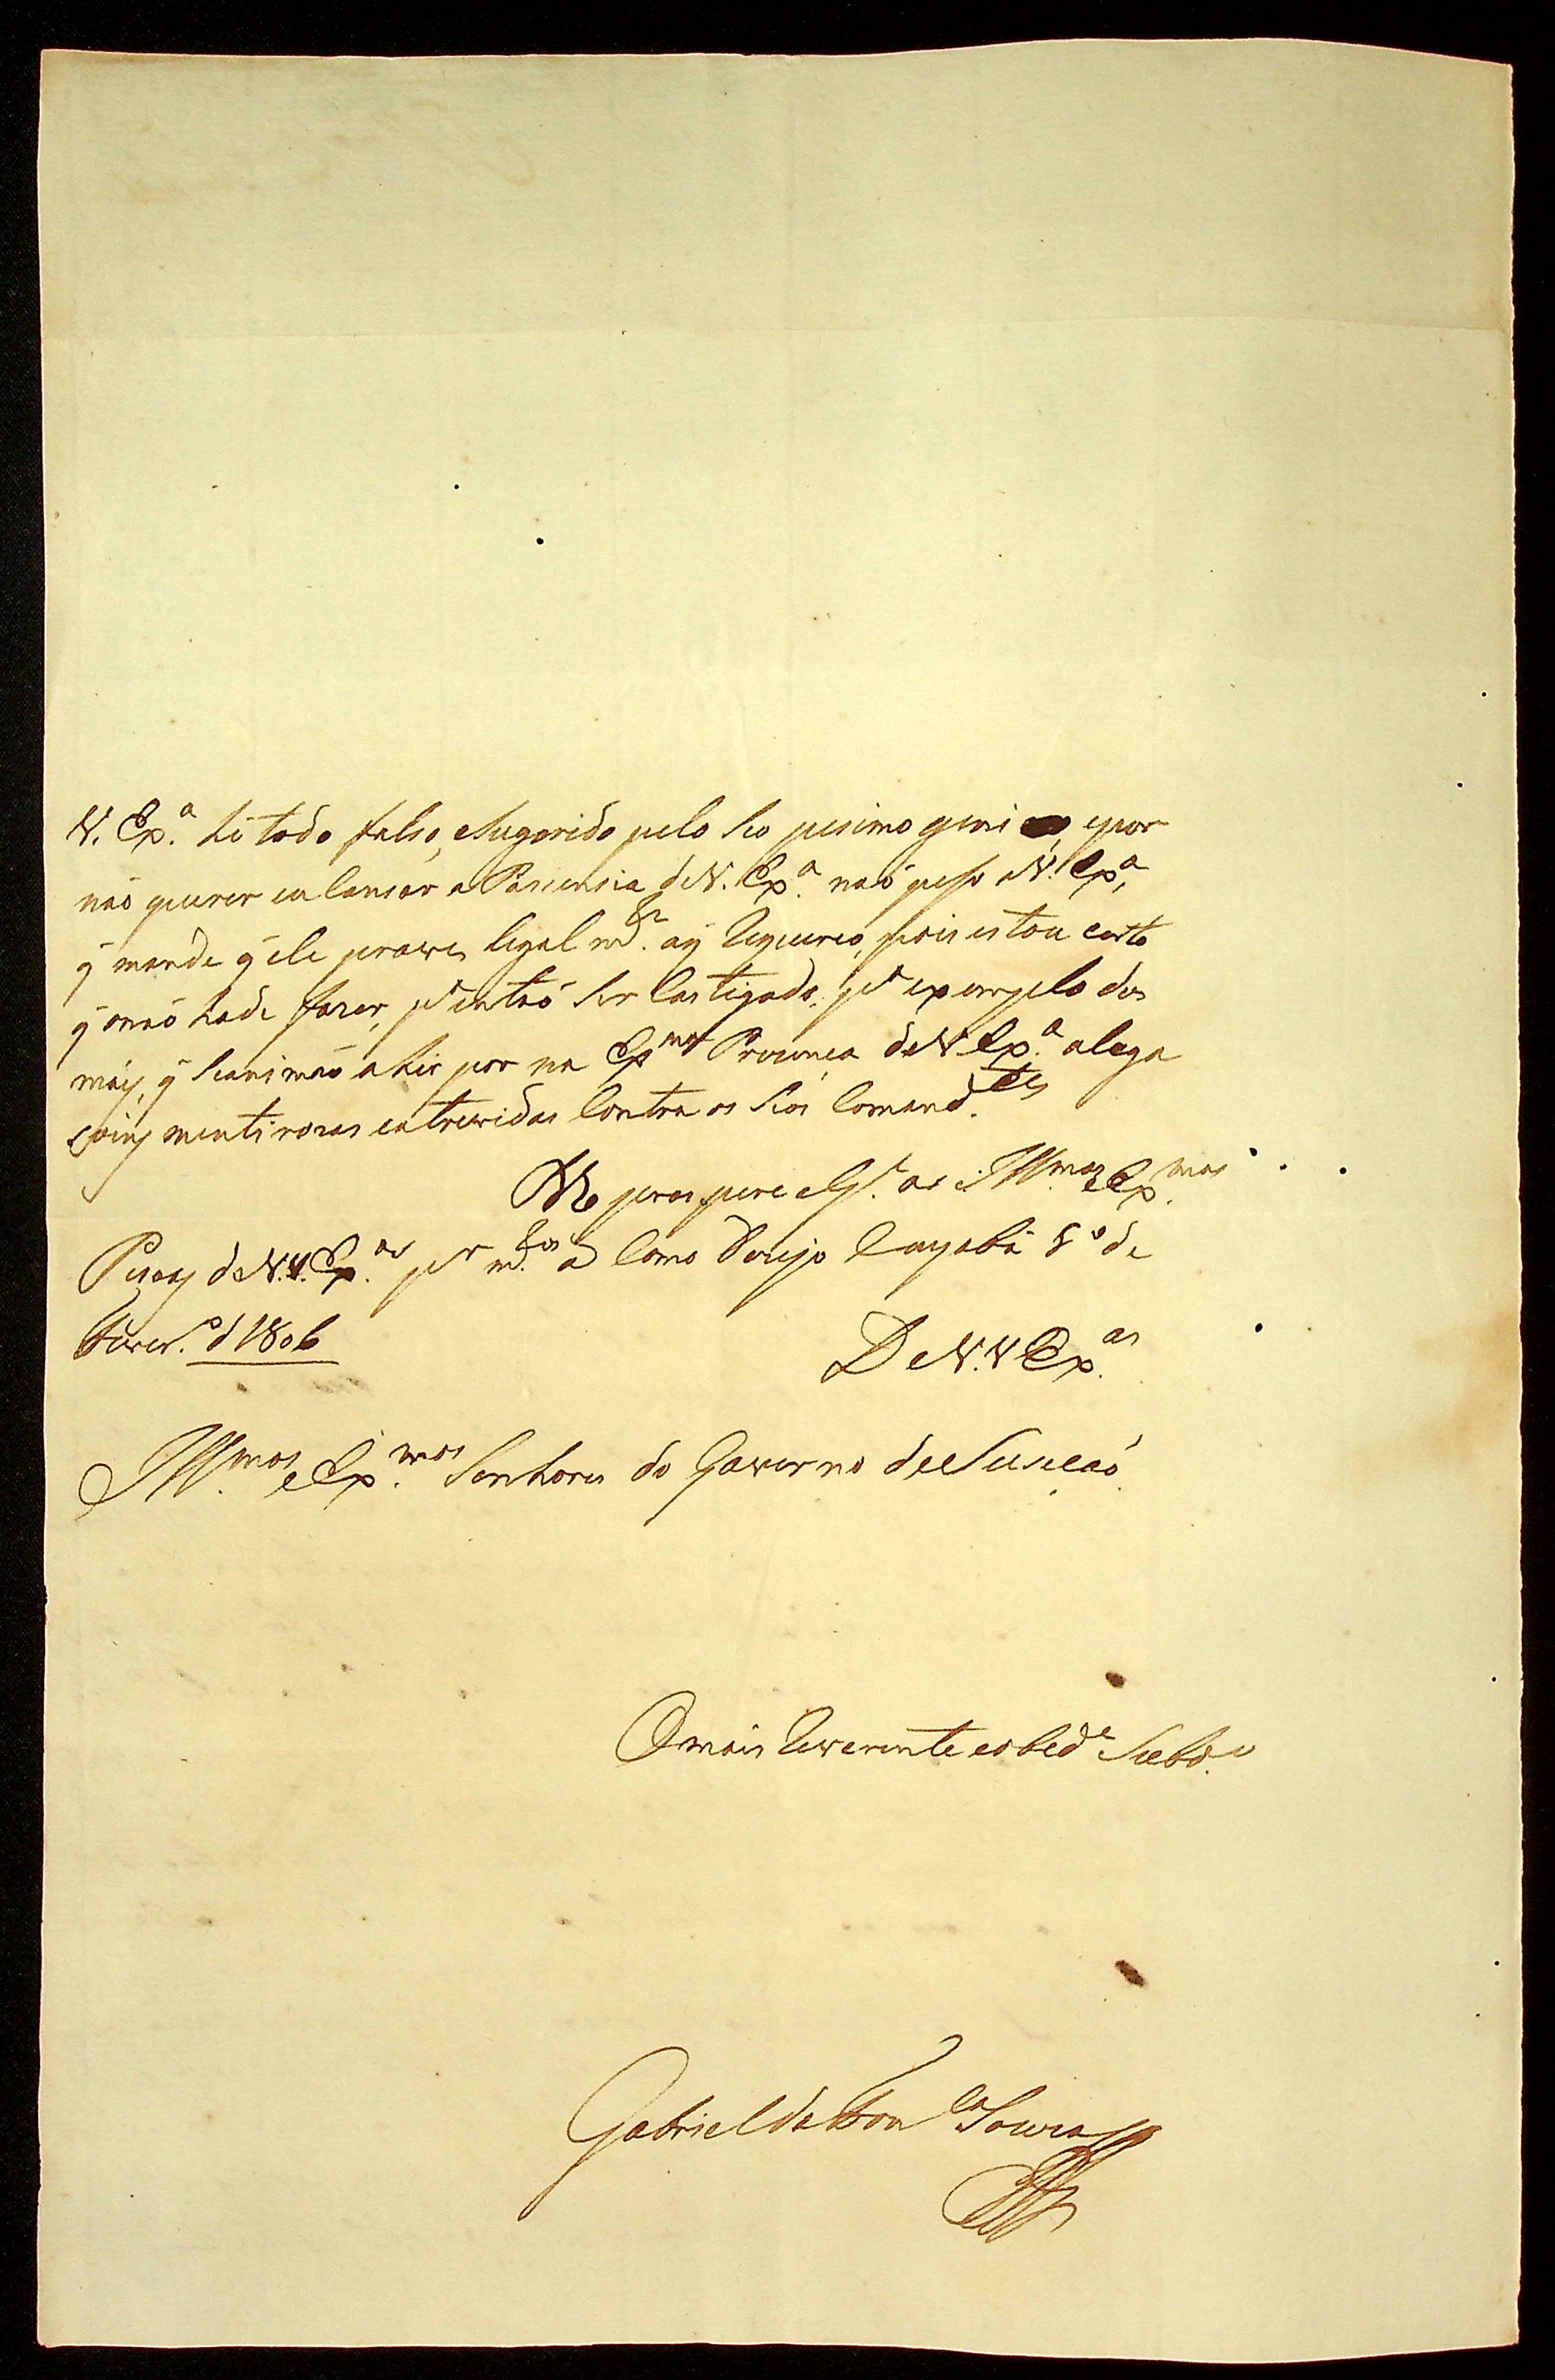 V. Ex.ª hé todo falso, e Sugerido pelo Seo pesimo genio, epor
naõ querer eu Cansar a Pasiensia deV. Ex.ª naõ peso aV. Exª,
q̃ mande q̃ ele prove, legal m.te oq̃ Requereo, pois estou certo
q̃ onaõ hade fazer, pª entaõ Ser Castigado, pª exemplo dos
máis, q̃ Seanimaõ a hir por na Exma Prezença deV Ex.ª alega
çoins mentirozas eatrevidas Contra os Seos Comand.tes
D.s prospere eG.e as Illmas eEx.mas
Pesoas deV.V.Ex.as pr m.tos a Como Dezejo Cuyabá 8 de
Fever.º d 1806
DeV.VEx.as
Illmos eEx.mos Senhores do Governo deSuseçaõ
Omais Reverente eobed.e Subd.º
Gabriel daFon.ca Souza